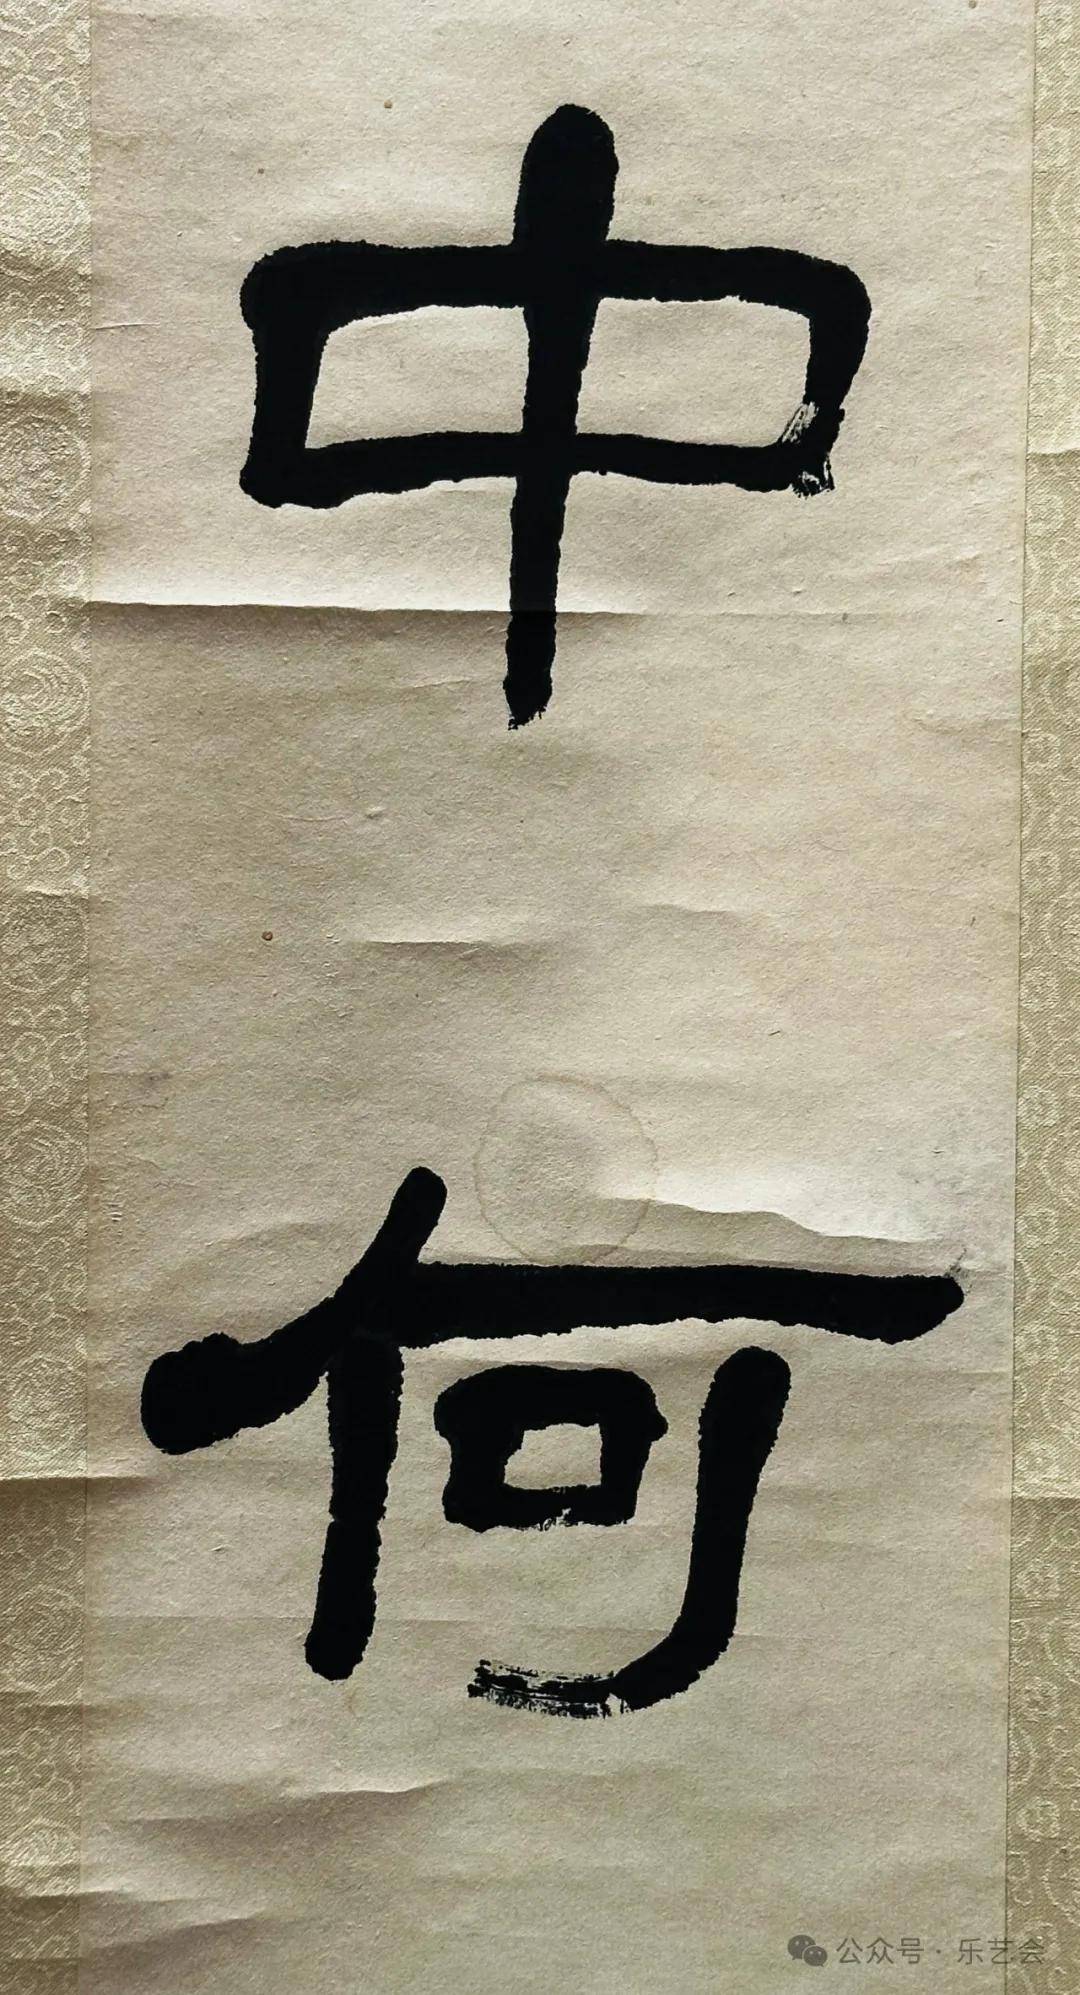 中
何
公众号·乐艺会